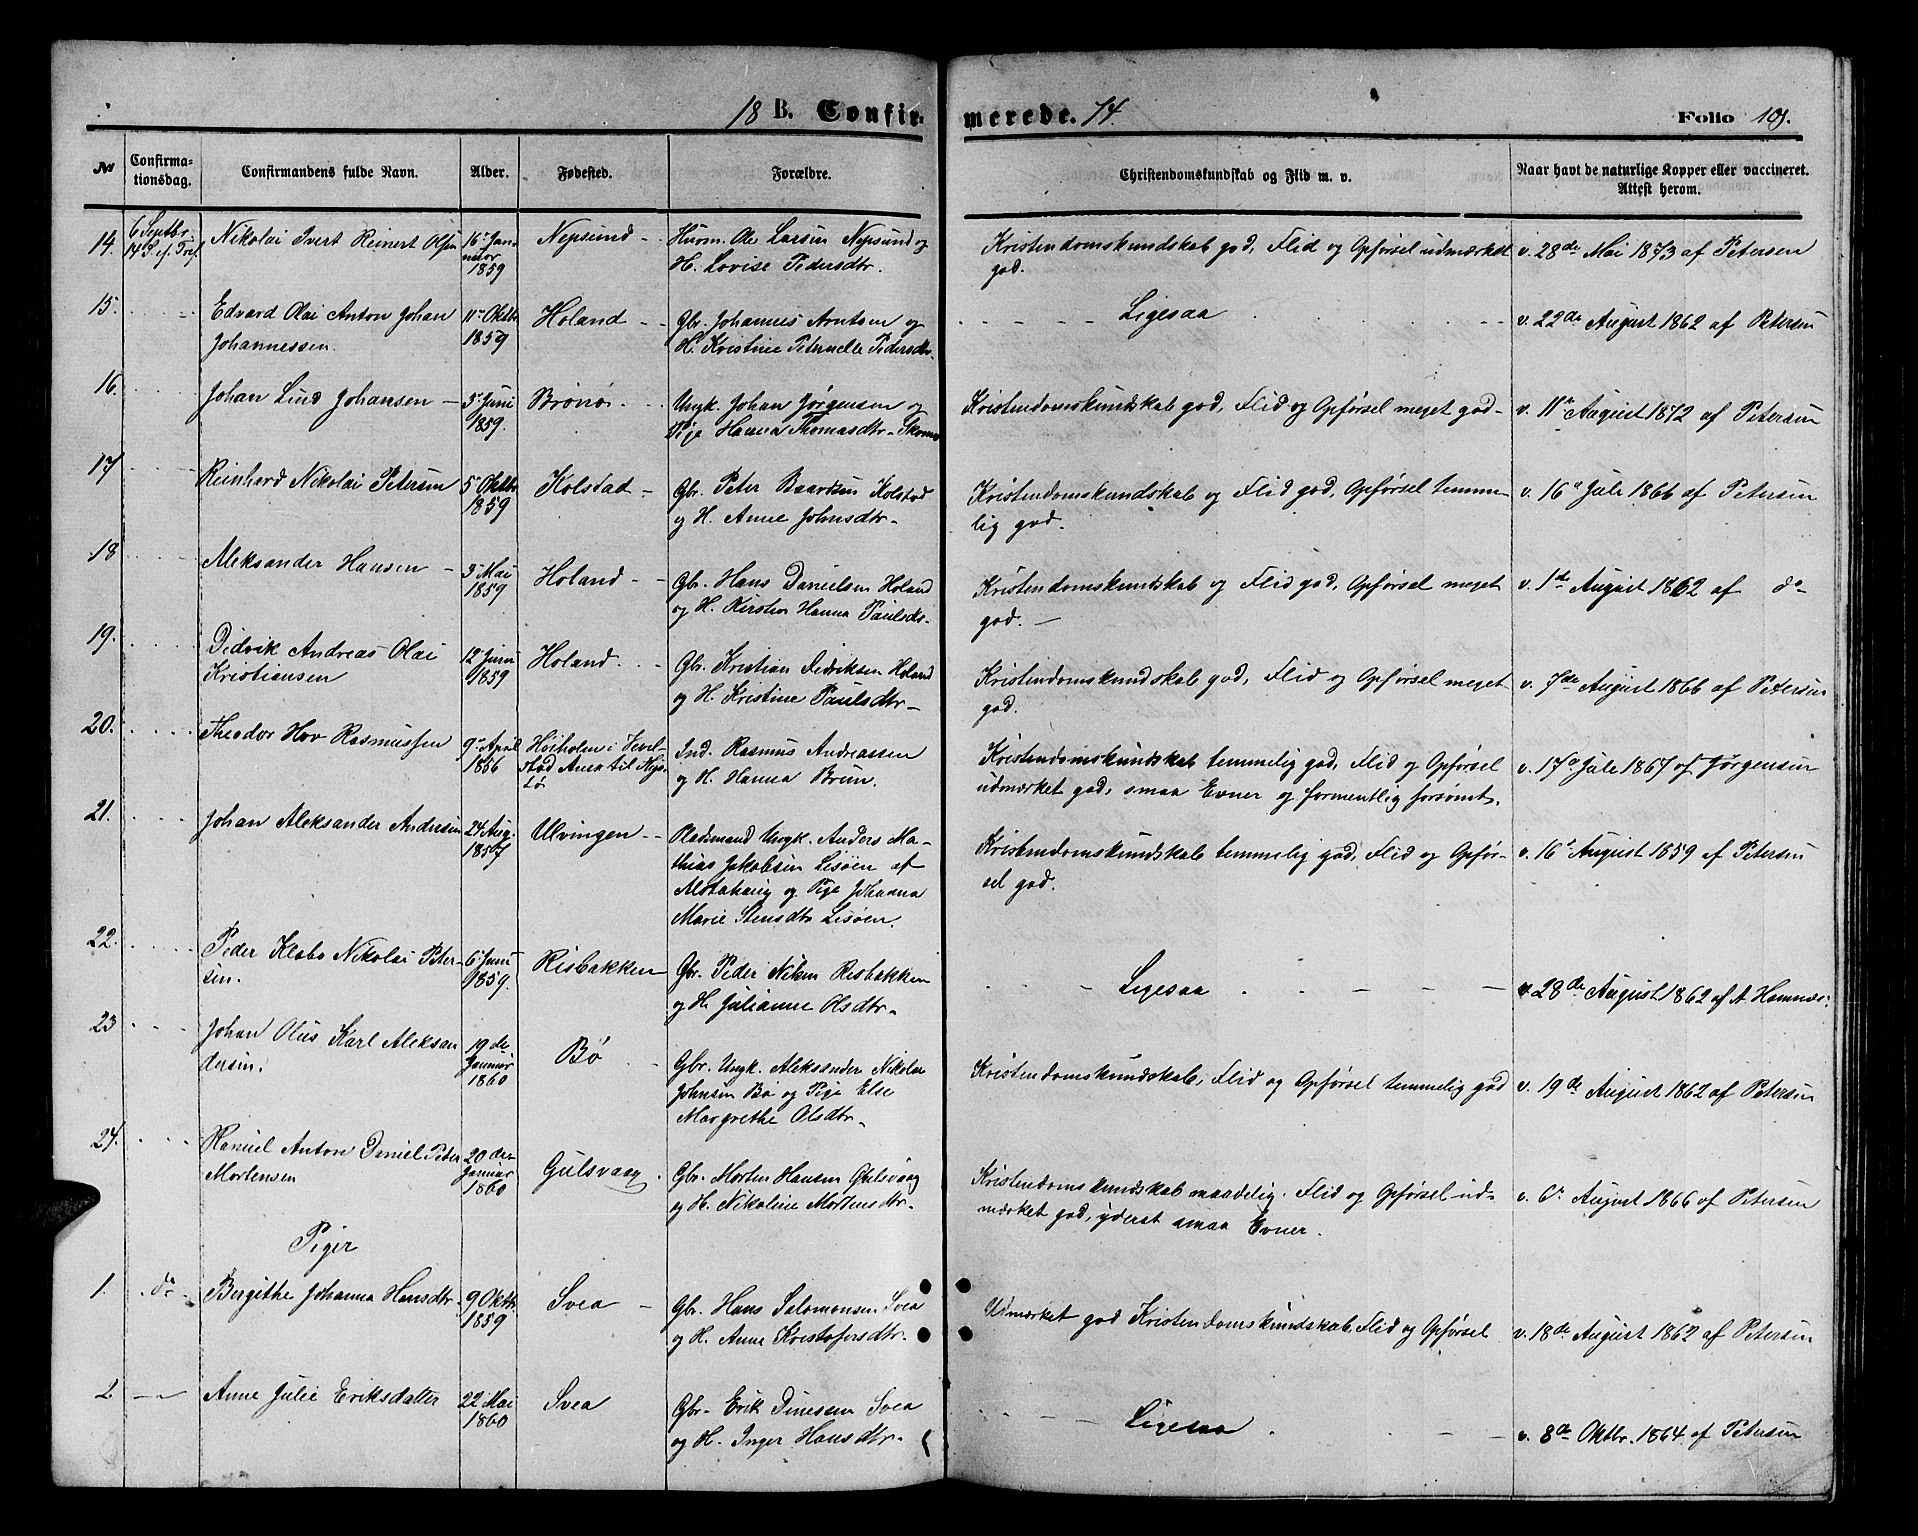 18 B. Confirmerede. 74. Folio 109.
№ Confirmationsdag. Confirmandens fulde Navn. Alder. Fødested. Forældre. Christendomskundskab og Flid m. v. Naar havt de naturlige Kopper eller vaccineret. Attest herom.
14. 6 Septbr. 14 S. ef. Tref. Nikolai Ivert Reinert Olsen 16de Januar 1859 Nepsund Huusm. Ole Larsen Nepsund og
H. Lovise Pedersdtr. Kristendomskundskab god, Flid og Opførsel udmærket
god. v. 28de Mai 1873 af Petersen
15. Edvard Olai Anton Johan
Johannessen. 11te Oktbr 1859 Holand Gbr. Johannes Arntsen og
H. Kristine Peternelle Pedersdtr. Ligesaa v. 22de August 1862 af Petersen
16. Johan Lind Johansen 5te Juni 1859. Brønø Ungk. Johan Jørgensen og
Pige Hanna Thomasdtr. Kristendomskundskab god, Flid og Opførsel meget god v. 11te August 1872 af Petersen
17 Reinhard Nikolai Petersen 5te Oktbr 1859 Kolstad Gbr. Peter Baardsen Kolstad
og H. Anne Johnsdtr. Kristendomskundskab og Flid god, Opførsel temme-
lig god. v. 16de Juli 1866 af Petersen
18 Aleksander Hansen 3die Mai 1859 Holand Gbr. Hans Danielsen Holand
og H. Kirsten Hanna Paulsds. Kristendomskundskab og Flid god, Opførsel meget
god. v. 1de August 1862 af do
19. Didvik Andreas Olai
Kristiansen 12te Juni 1859 Holand. Gbr. Kristian Didriksen Holand
og H. Kristine Paulsdtr Kristendomskundskab god, Flid og Opførsel meget
god. v. 7de August 1866 af Petersen
20. Theodor Hov Rasmussen 9de April 1856 Høiholm i Vevel-
stad Anex til
Ind. Rasmus Andreassen
og H. Hanna Brun. Kristendomskundskab temmelig god, Flid og Opførsel
udmærket god, smaa Evner og formentlig forsømt. v. 17de Juli 1867 af Jørgensen
21. Johan Aleksander Andersen 24 Aug. 1857 Ulvingen Pladsmand Ungk. Anders Ma-
thias Jakobsen Lisøen af
Alstahaug og Pige Johanna
Marie Stensdtr Lisøen. Kristendomskundskab temmelig god, Flid og Opfør-
sel god. v. 16de August 1859 af Petersen
22. Peder Klabo Nikolai Peter-
sen. 6te Juni 1859. Risbakken Gbr. Peder Nilsen Risbakken
og H. Julianne Olsdtr. Ligesaa v. 28de August 1862 af A. Hamnæs.
23 Johan Olus Karl Aleksan
dersen. 19de Januar 1860 Bø Gbr. Ungk. Aleksander Nikolai
Johnsen Bø og Pige Else
Margrethe Olsdtr. Kristendomskundskab, Flid og Opførsel temmelig god v. 19de August 1862 af Petersen
24. Hanuel Anton Daniel Peder
Mortensen 20de Januar 1860 Gulsvaag. Gbr. Morten Hansen Gulsvaag
og H. Nikoline Mortensdtr. Kristendomskundskab maadelig. Flid og Opførsel ud-
mærket god, yderst smaa Evner. v. 6te August 1866 af Petersen
Piger
1. do Bergithe Johanna Hansdtr. 9 Oktbr. 1859 Svea Gbr. Hans Salomonsen Svea
og H. Anne Kristofersdtr. Udmærket god Kristendomskundskab, Flid og Opførsel v. 18de August 1862 af Petersen
2 Anne Julie Eriksdatter 22 Mai 1860 Svea Gbr. Erik Dinessen Svea
og H. Inger Hansdtr. Ligesaa v. 8de Oktbr. 1864 af Petersen